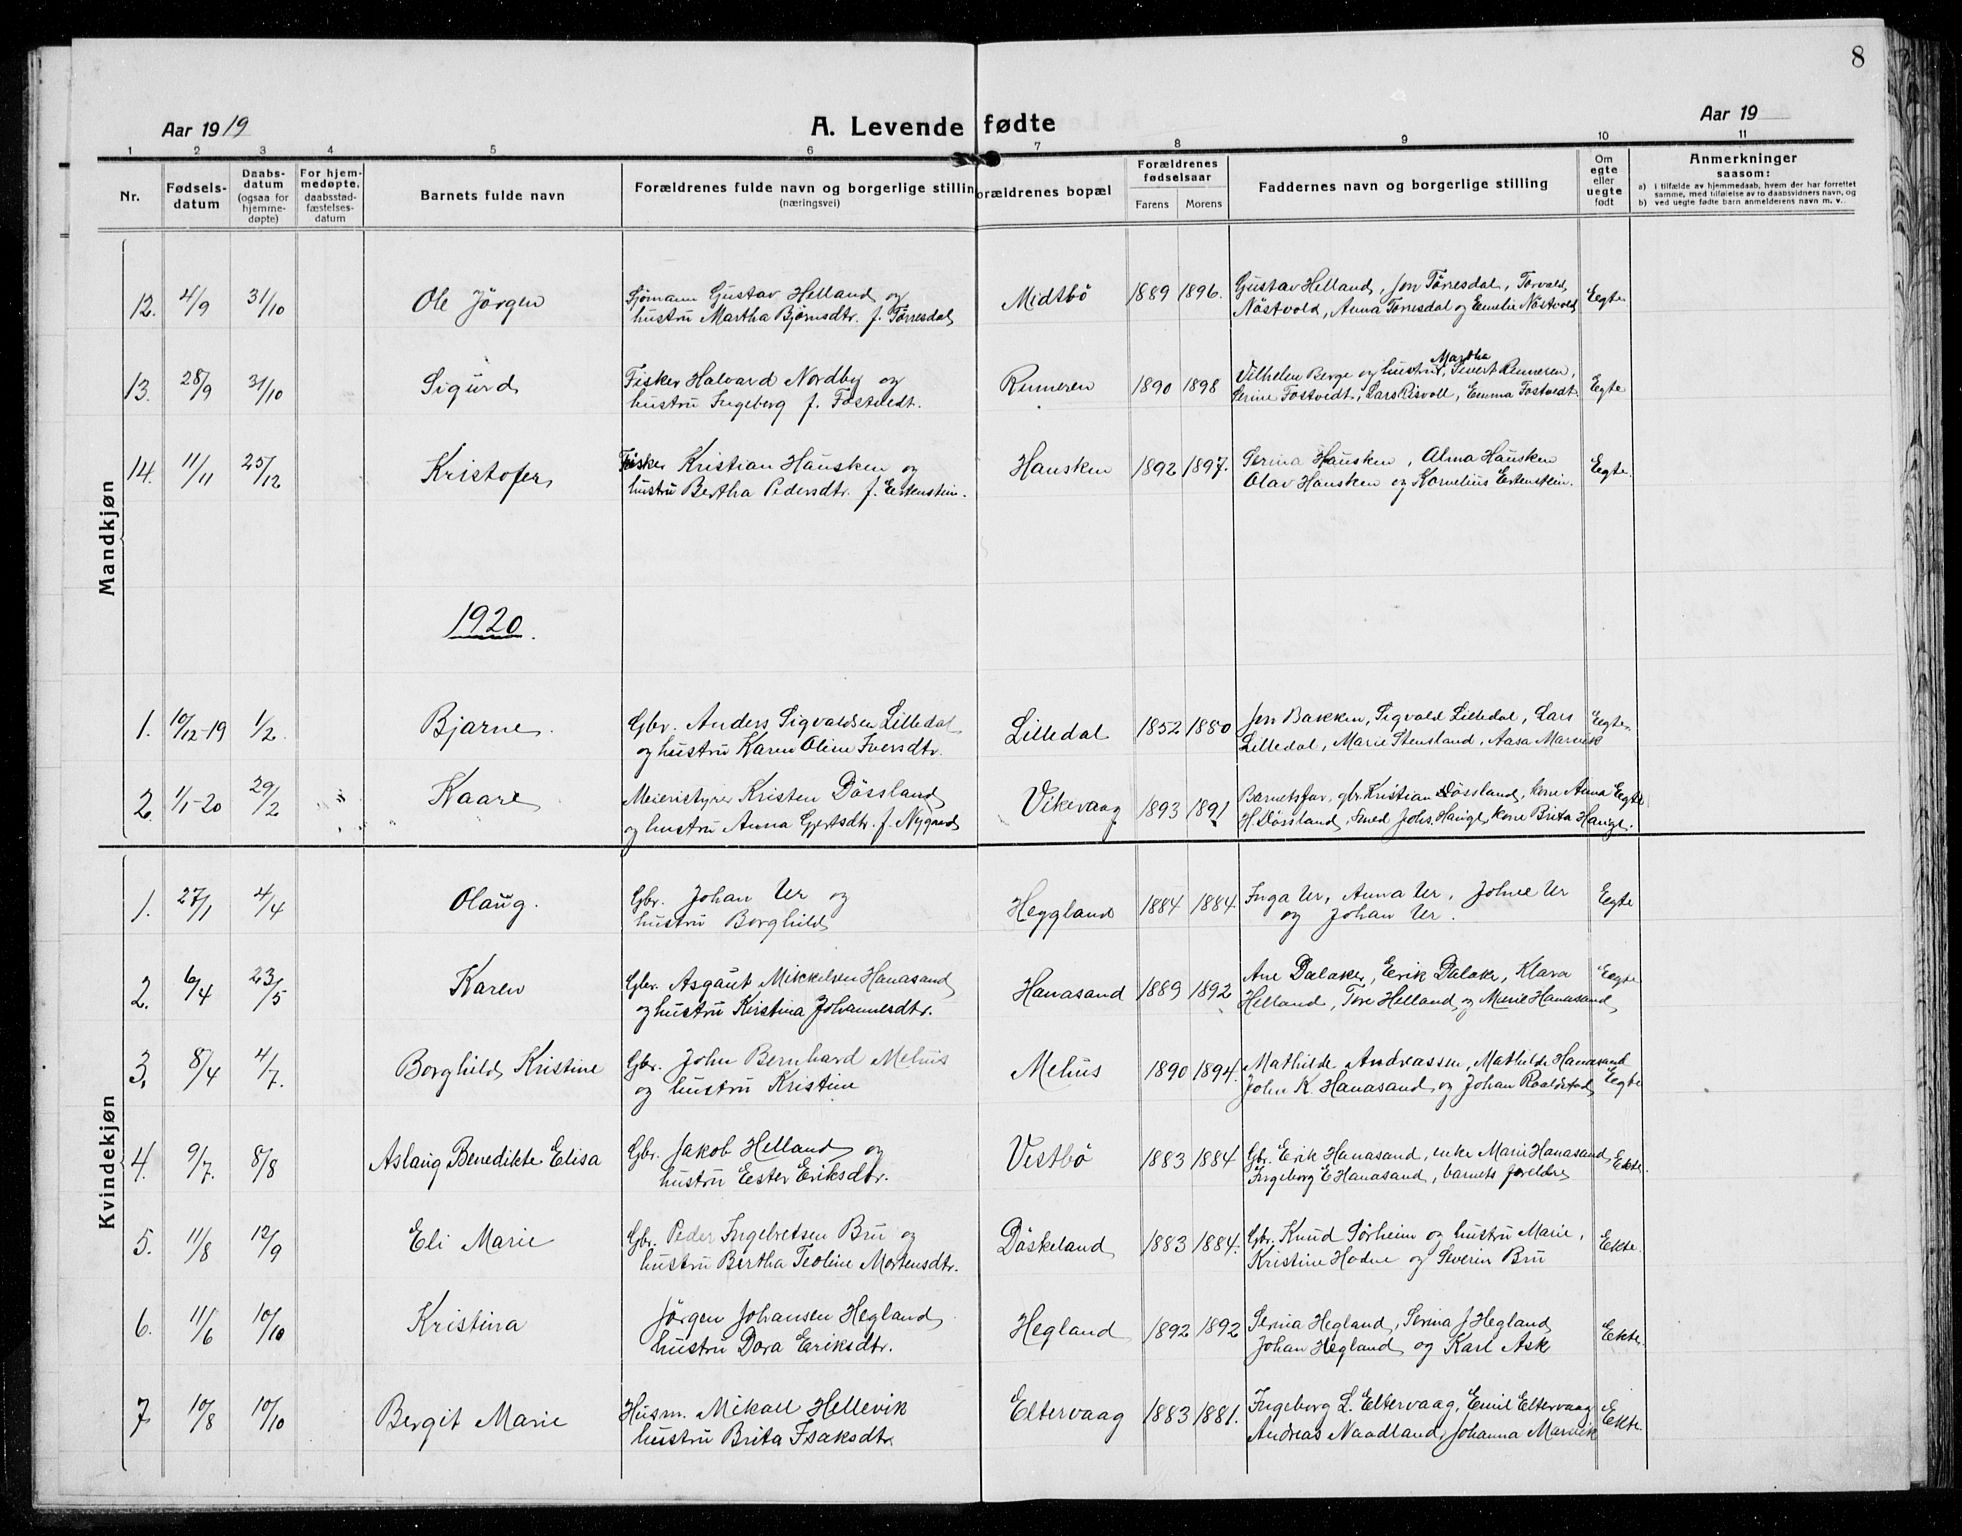 8
Aar 1919 A. Levende fødte Aar 19
1 2 3 4 5 6 7 8 9 10 11
Nr. Fødselsdatum Daabsdatum (ogsaa for hjemmedøpte) For hjemmedøpte, daabsstadfæstelsesdatum Barnets fulde navn Forældrenes fulde navn og borgerlige stillin (næringsvei) orældrenes bopæl Forældrenes fødselsaar Farens Morens Faddernes navn og borgerlige stilling Om egte eller uegte født Anmerkninger saasom:
a) i tilfælde av hjemmedaab, hvem der har forrettet samme, med tilføielse av to daabsvidners navn, og
b) ved uegte fødte barn anmelderens navn m. v.
Mandkjøn
12. 4/9 31/10 Ole Jörgen Sjømann Gustav Helland og Midtbö 1889 1896. Gustav Helland, Jon Tørresdal, Torvald Egte
hustru Martha Bjørnsdtr. f. Tørresdal Nöstvold, Anna Torresdal og Emelie Nöstvold
13. 28/9 31/10 Sigurd Fisker Halvard Nordby og Renneren 1890 1898 Vilhelm Berge og hustru Martha, Sivert Renneren, Egte
hustru Ingeberg f. Fostvedt. Serine Fostvedt, Lars Risvoll, Emma Fostvedt
14. 11/11 25/12 Kristofer Fisker Kristian Hausken og Hausken 1892 1897. Serina Hausken, Alma Hausken Egte
hustru Bertha Pedersdtr. f. Ertenstein. Olav Hausken og Kornelius Ertenstein.
1920.
1. 10/12-19 1/2. Bjarne. Gbr. Anders Sigvaldsen Lilledal Lilledal 1852 1880 Jon Bakken, Sigvald Lilledal, Lars Egte
og hustru Karen Oline Iversdtr. Lilledal, Marie Stensland, Aasa Marvik
2. 1/1-20 29/2 Kaare Meieristyrer Kristen Dössland Vikevaag 1893 1891 Barnets far, gbr. Kristian Døssland, kone Anna Egte
og hustru Anna Gjertsdtr. f. Nygaard H. Døssland, Smed Johs. Hauge, kone Brita Hauge.
Kvindekjøn
1. 27/1 4/4 Olaug. Gbr. Johan Ur og Heggland 1884 1884. Inga Ur, Anna Ur, Johne Ur Egte
hustru Borghild og Johan Ur.
2. 6/4 23/5 Karen Gbr. Asgaut Mikkelsen Hanasand Hanasand 1889 1892 Ane Dalaker, Erik Dalake, Klara Egte
og hustru Kristina Johannesdtr. Helland, Tore Helland og Marie Hanasand
3. 8/4 4/7. Borghild Kristine Gbr. John Bernhard Mehus Mehus 1890 1894. Mathilde Andreassen, Mathilde Hanasand
og hustru Kristine John K. Hanasand og Johan Roaldstad Egte
4. 9/7. 8/8 Aslaug Benedikte Elisa Gbr. Jakob Helland og Vestbö 1883 1884 Gbr. Erik Hanasand, enke Marie Hanasand Ekte.
hustru Ester Eriksdtr. Ingeborg E Hanasand, barnets foreldre
5. 11/8 12/9 Eli Marie Gbr. Peder Ingebretsen Bru og Döskeland 1883 1884. Gbr. Knud Sørheim og hustru Marie, Ekte.
hustru Bertha Teoline Mortensdtr. Kristine Hodne og Severin Bru
6. 11/6 10/10 Kristina Jörgen Johansen Hegland Hegland 1892 1892 Serina Hegland, Serina J Hegland Ekte.
hustru Dora Eriksdtr. Johan Hegland og Karl Ask
7 10/8 10/10 Bergit Marie Husm. Mikael Hellevik Eltervaag 1883 1881. Ingeborg L. Eltervaag, Emil Eltervaag Ekte.
hustru Brita Isaksdtr. Andreas Naadland, Johanna Marvik